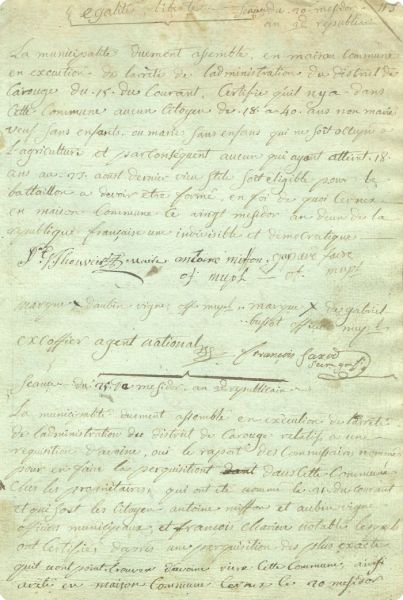 Egalité Liberté Seance du 20 messidor
an 2d republicain
La municipalité duement assemblé, en maison commune
en execution de l'arreté de l'administration du district de
Carouge du 15 du Courant, Certifie quil nya dans
Cette Commune aucun Citoyen de 18 a 40 ans non marié
veuf sans enfants, ou marié sans enfans qui ne soit occupé a
l'agriculture et par consequent aucun qui ayant atteint 18
ans au aoust dernier vieu stile soit eligible pour le
bataillon a devoir être formé, en foi de quoi
en maison Commune le vingt mesidor an deux de la
republique française une indivisible et democratique
maire antoine miffon
of mupl of mupl
marque x daubin vigne off mupl marque x de gabriel
officier mupl
excoffier agent national
françois
Seance du mesidor, an 2d republicain
La municipalité duement assemblé en execution de l'arreté
de l'administration du district de Carouge relatif a une
requisition d'avoine, oui le raport des Commissaires nommé
pour en faire les perquisitions dans Cette Commune
Ches les propriétaires, qui ont été nommé le du courant
et qui sont les Citoyen antoine miffon et aubin vigne
officies municipaux, et françois notable lesquels
ont Certifiés daprès une perquisition des plus exacte
quil nont point trouvés d'avoine riere Cette Commune, ainsi
arreté en maison Commune le 20 mesidor